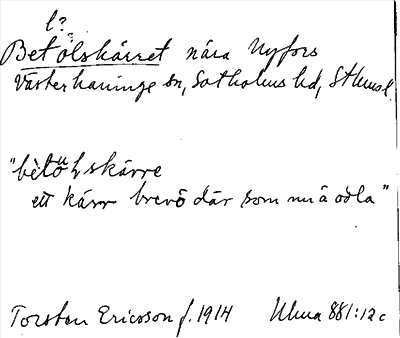 l?
Betölskärret nära Nyfors
Västerhaninge sn, Sotholms hd, Sthmsl.
"bètöɥskärre
ett kärr brevé där som nu ä odla"
Torsten Ericsson f. 1914 Ulma 881:12c